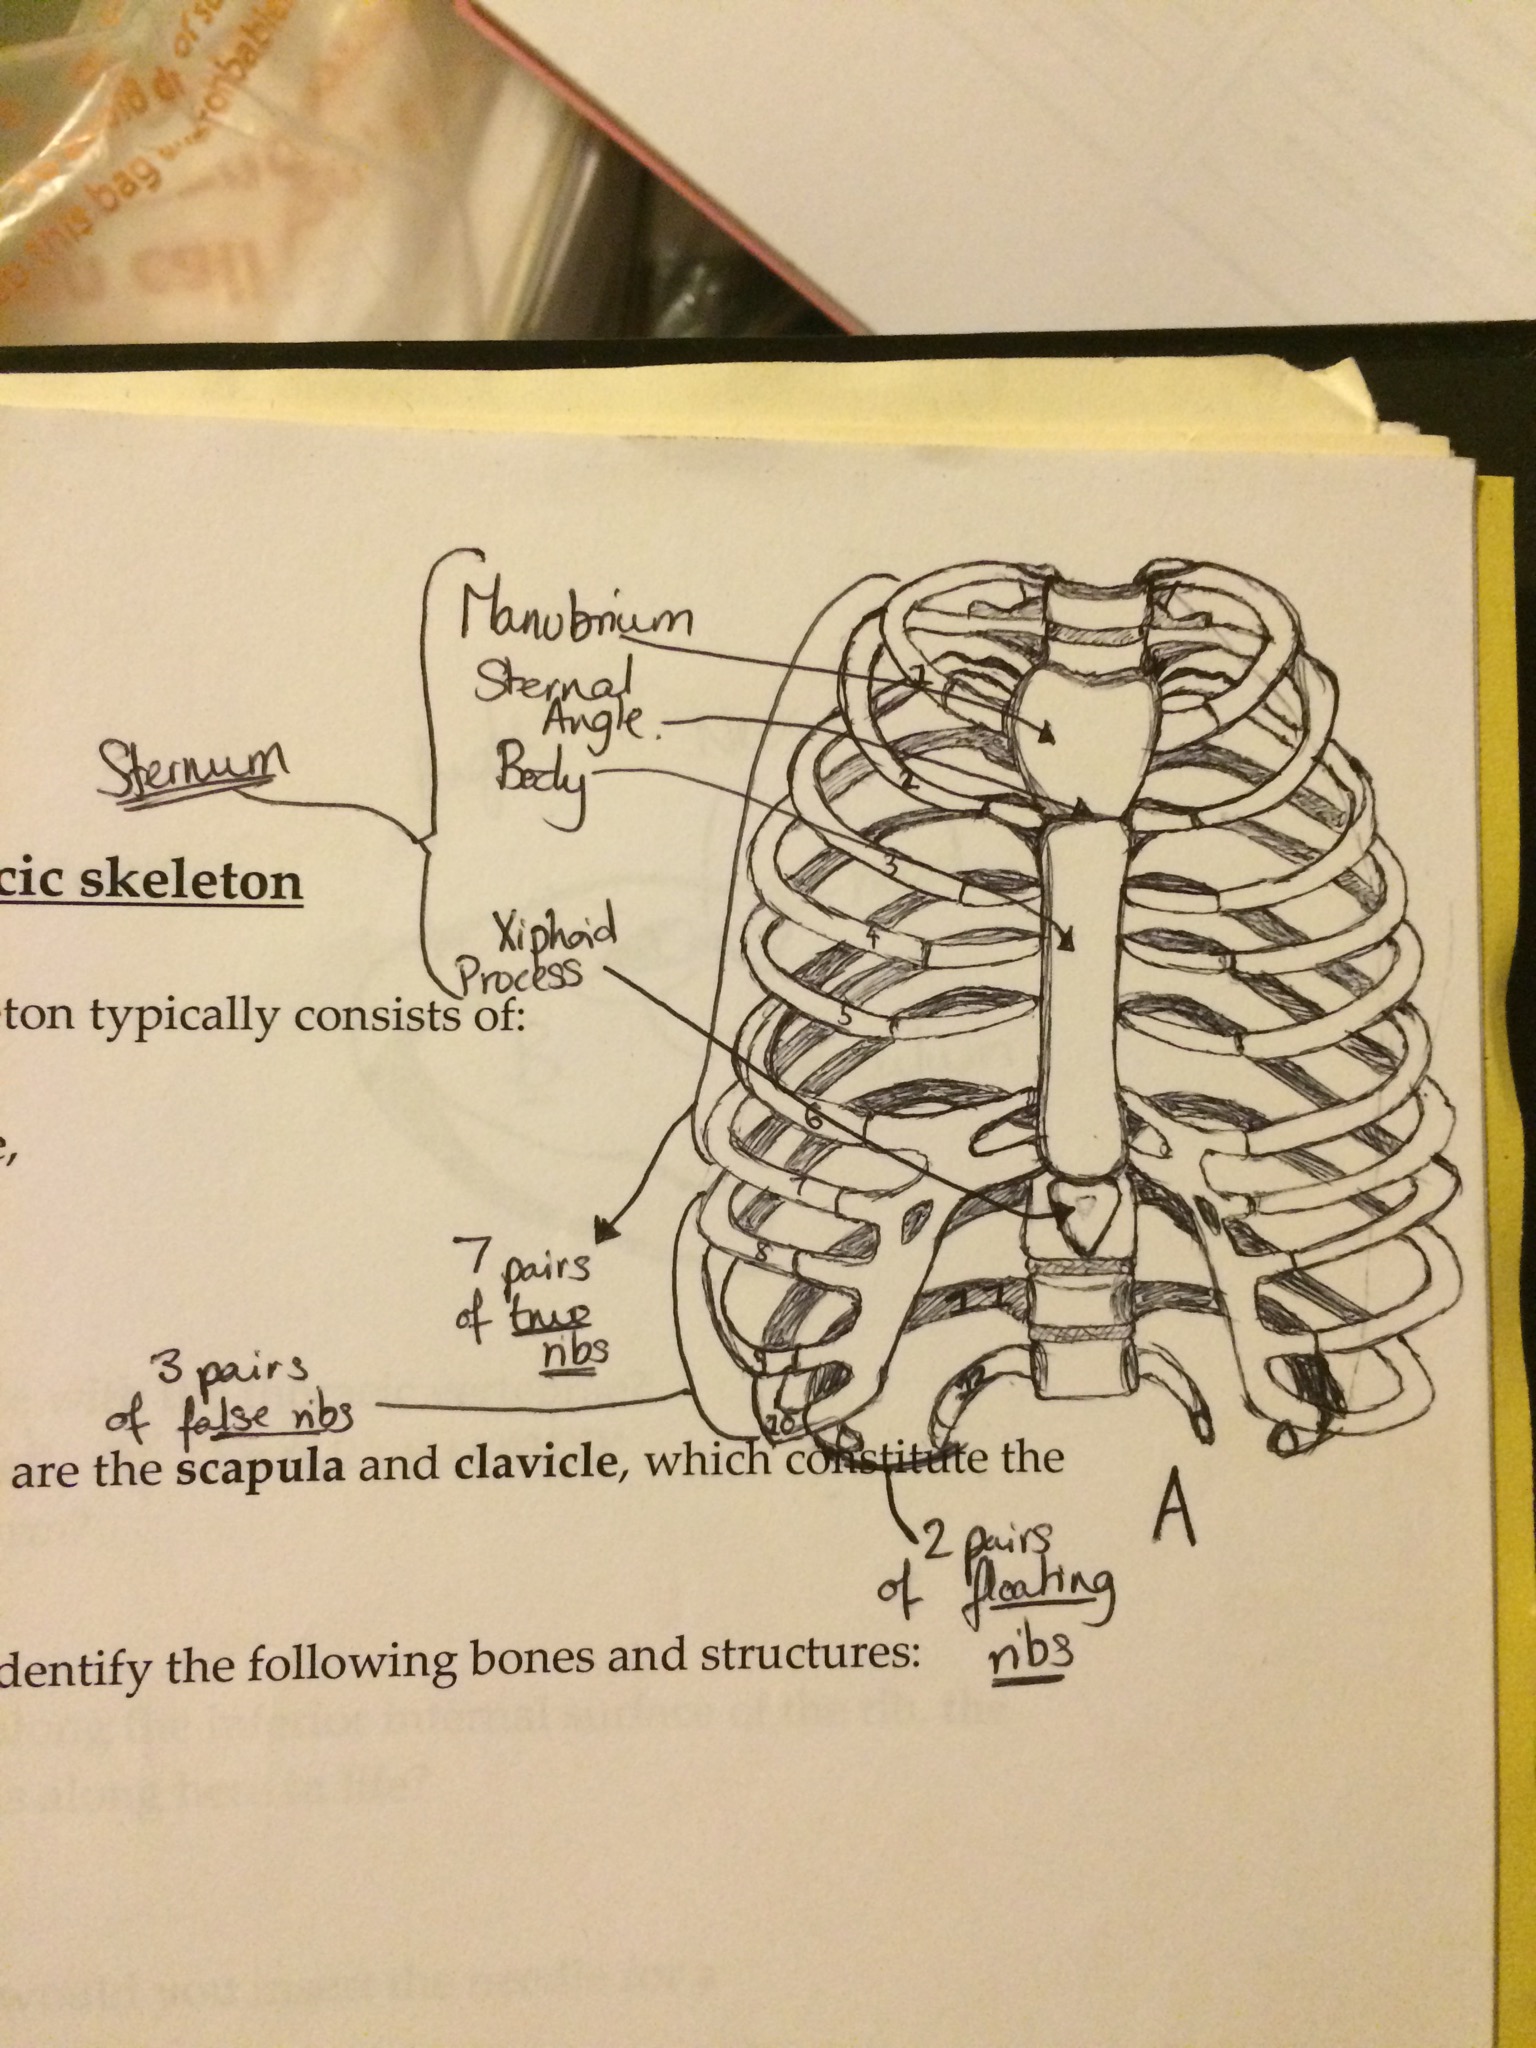 this bag
call
Manubrium
Sternal
Angle.
Body
Sternum
cic skeleton
Xiphoid
Process
eton typically consists of:
e,
1
2
3
4
5
6
7
8
9
10
11
12
7 pairs
of true
ribs
3 pairs
of false ribs
are the scapula and clavicle, which constitute the
A
2 pairs
of floating
ribs
dentify the following bones and structures: